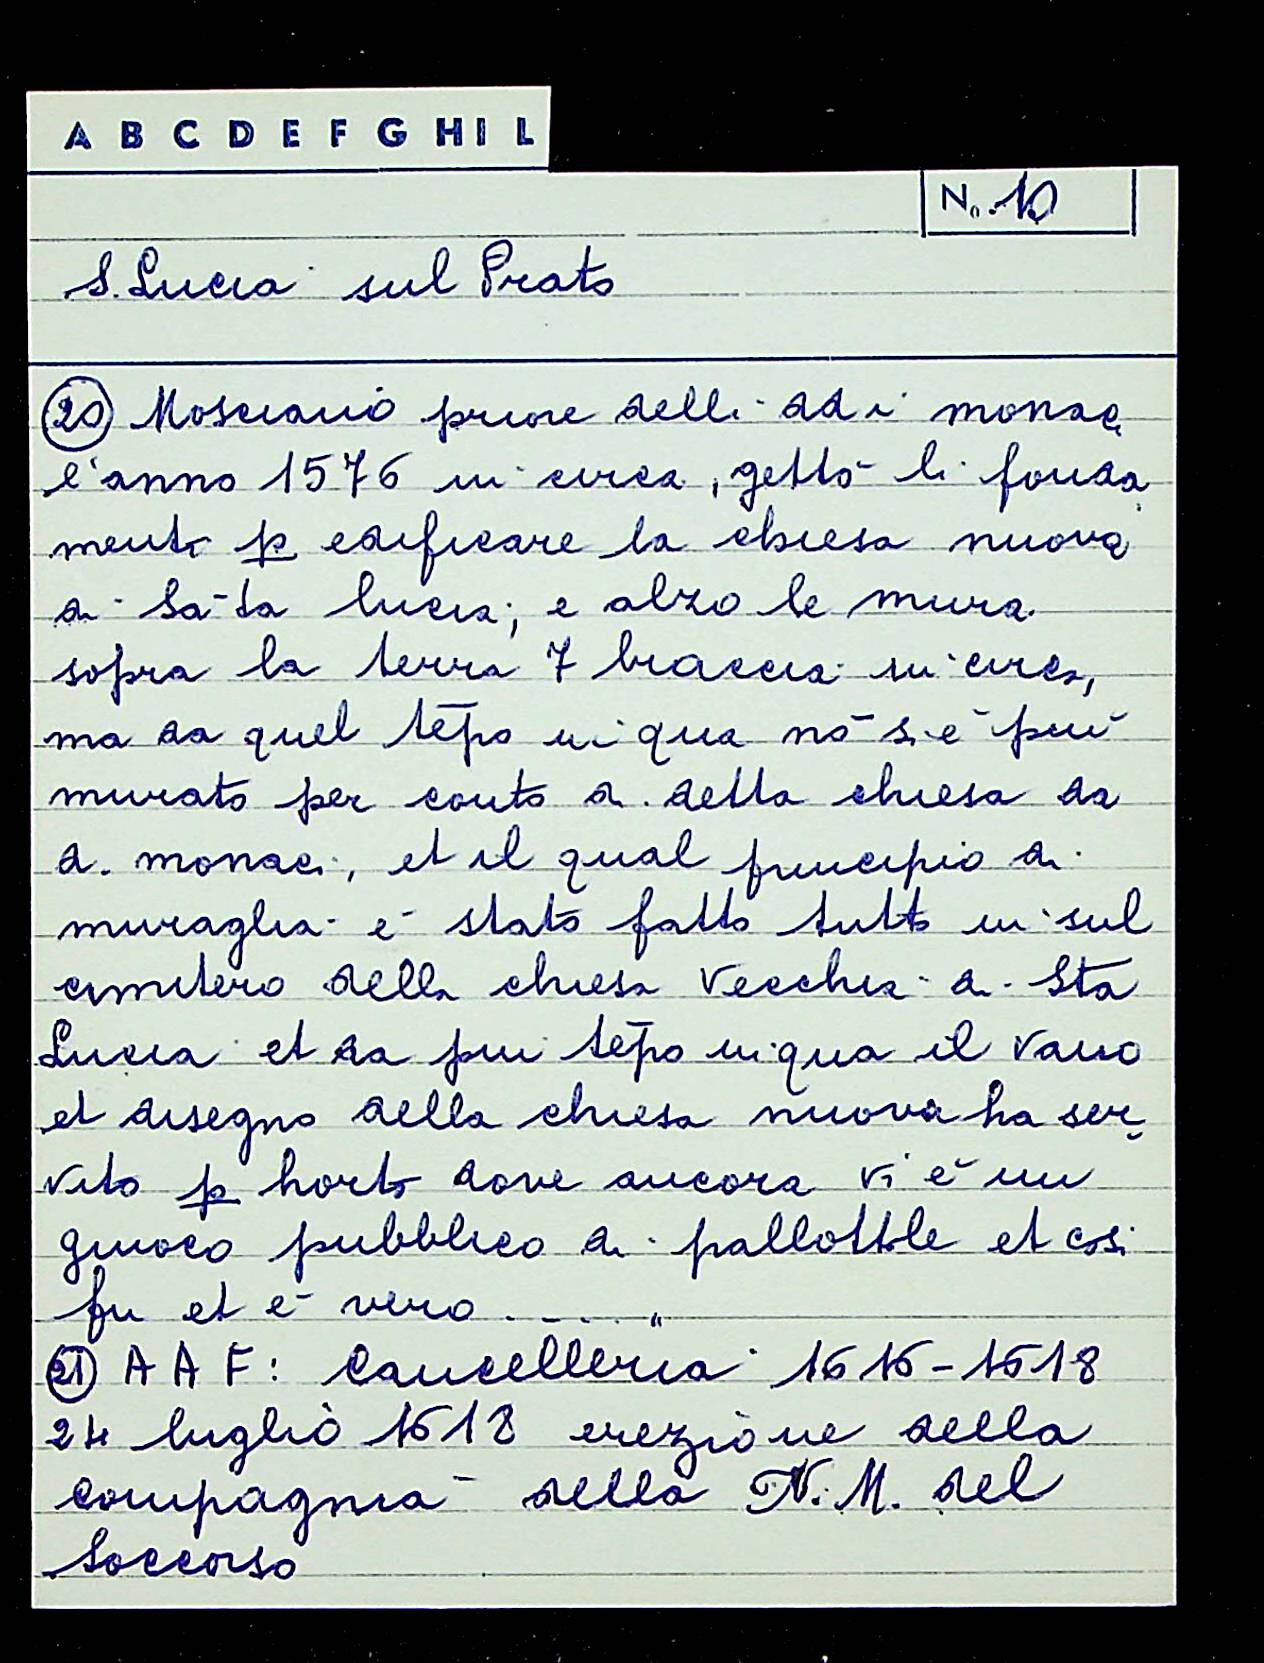 A B C D E F G H I L
N. 10
S. Lucia sul Prato
20 Mosciano priore delli ddi monac
l'anno 1576 in circa, gettò li fonda
menti p edificare la chiesa nuova
di Sāta Lucia; e alzo le mura
sopra la terra 7 braccia in circa,
ma da quel tēpo in qua nō si è più
murato per conto di detta chiesa da
d. monaci, et il qual principio di
muraglia è stato fatto tutto in sul
cimitero della chiesa vecchia di Sta
Lucia et da piu tēpo in qua il vano
et disegno della chiesa nuova ha ser
vito p horto dove ancora vi è un
giuoco pubblico di pallottole et cosi
fu et è vero ..... "
21 A A F: Cancelleria 1616-1618
24 luglio 1618 erezione della
compagnia della N. M. del
Soccorso